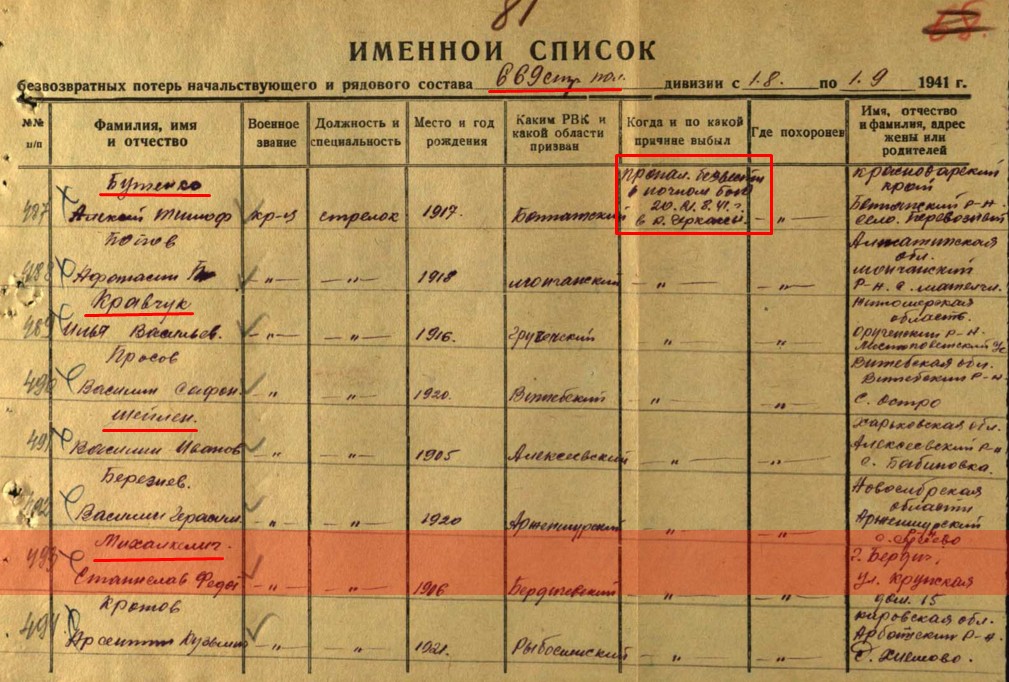 81
58.
ИМЕННОЙ СПИСОК
безвозвратных потерь начальствующего и рядового состава 669 стр. пол. дивизии с 1.8. по 1.9 1941 г.
№№ п/п
Фамилия, имя и отчество
Военное звание
Должность и специальность
Место и год рождения
Каким РВК и какой области призван
Когда и по какой причине выбыл
Где похоронен
Имя, отчество и фамилия, адрес жены или родителей
487 Бутенко Алексей Тимоф кр-ц стрелок 1917. пропал безвести в ночном бою 20.21.8.41 г. — „ — Краснодарский край
488 Попов Афонасий — „ — — „ — 1918 — „ — — „ — обл. Р-н. с.
489 Кравчук Илья Васильев. — „ — — „ — 1916. „ — „ — область. Р-н.
490 Просов Василий Сафон — „ — — „ — 1920. Витебский — „ — „ Витебская обл. Витебский Р-н с. Остро
491 Шейлен. Василий Иванов — „ — — „ — 1905 Алексеевский „ — „ — Харьковская обл. Алексеевский Р-н с. Бабиновка.
492 Березнев. Василий Герасим. — „ — — „ — 1920 „ „ Новосибрская области
493 Михалкевич. Станислав Федо — „ — — „ — 1906 Бердичевский „ „ г. Бердич. ул. Крупская дом. 15
494 Кротов Арсентий Кузьмич — „ — — „ — 1921. — „ — — „ — Кировская обл. Р-н.